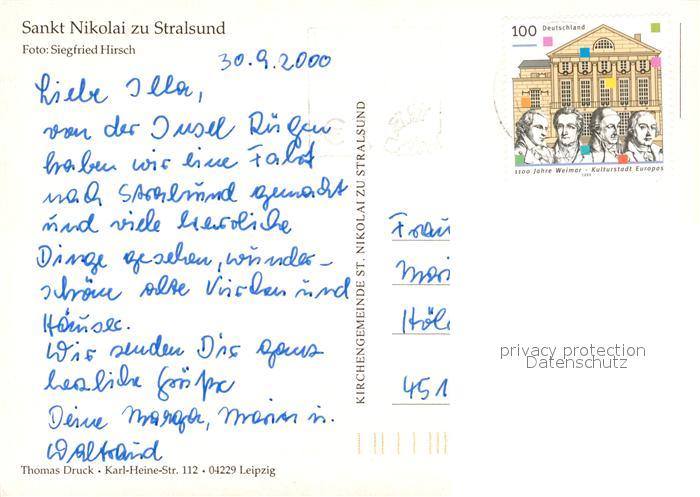 Sankt Nikolai zu Stralsund
Foto: Siegfried Hirsch
30.9.2000
Liebe Illa,
von der Insel Rügen
haben wir eine Fahrt
nach Stralsund gemacht
und viele herrliche
Dinge gesehen, wunder-
schöne alte Kirchen und
Häuser.
Wir senden Dir ganz
herzliche Grüße
Deine Marga, Marion u.
Waltraud
Thomas Druck • Karl-Heine-Str. 112 • 04229 Leipzig
KIRCHENGEMEINDE ST. NIKOLAI ZU STRALSUND
100 Deutschland
1100 Jahre Weimar - Kulturstadt Europas
1999
Frau
451
privacy protection
Datenschutz